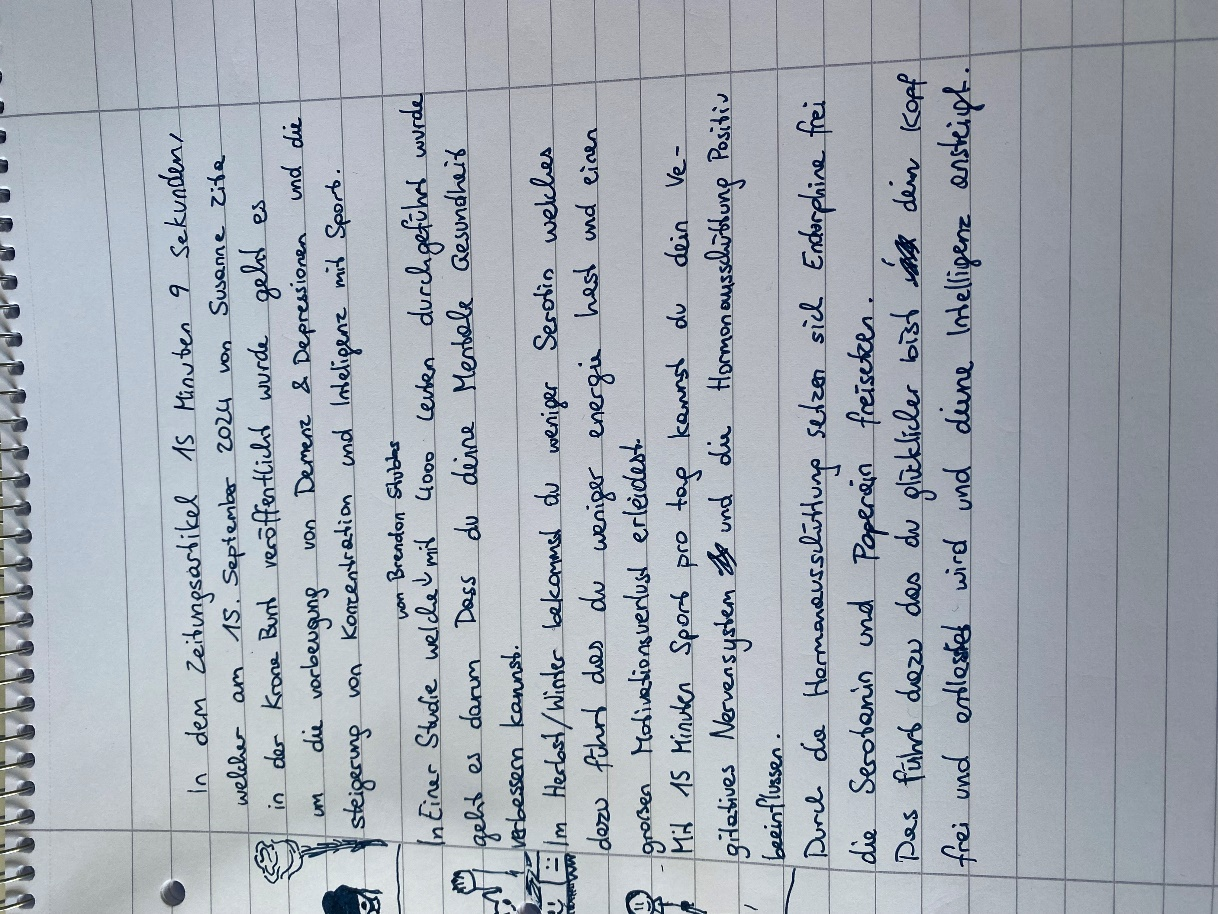 In dem Zeitungsartikel 15 Minuten 9 Sekunden,
welcher am 15. September 2024 von Susanne Zita
in der Krone Bunt veröffentlicht wurde geht es
um die vorbeugung von Demenz & Depressionen und die
steigerung von Konzentration und Inteligenz mit Sport.
von Brendon Stubbs
In Einer Studie welche mit 4000 leuten durchgeführt wurde
geht es darum Dass du deine Mentale Gesundheit
verbessern kannst.
Im Herbst/Winter bekommst du weniger Serotin welches
dazu führt das du weniger energie hast und einen
großen Motivationsverlust erleidest.
Mit 15 Minuten Sport pro tag kannst du dein Ve-
gitatives Nervensystem und die Hormonausschüttung Positiv
beeinflussen.
Durch die Hormonausschüttung setzen sich Endorphine frei
die Serotonin und Poperein freisetzen.
Das führt dazu das du glücklicher bist dein Kopf
frei und entlastet wird und deine Intelligenz ansteigt.